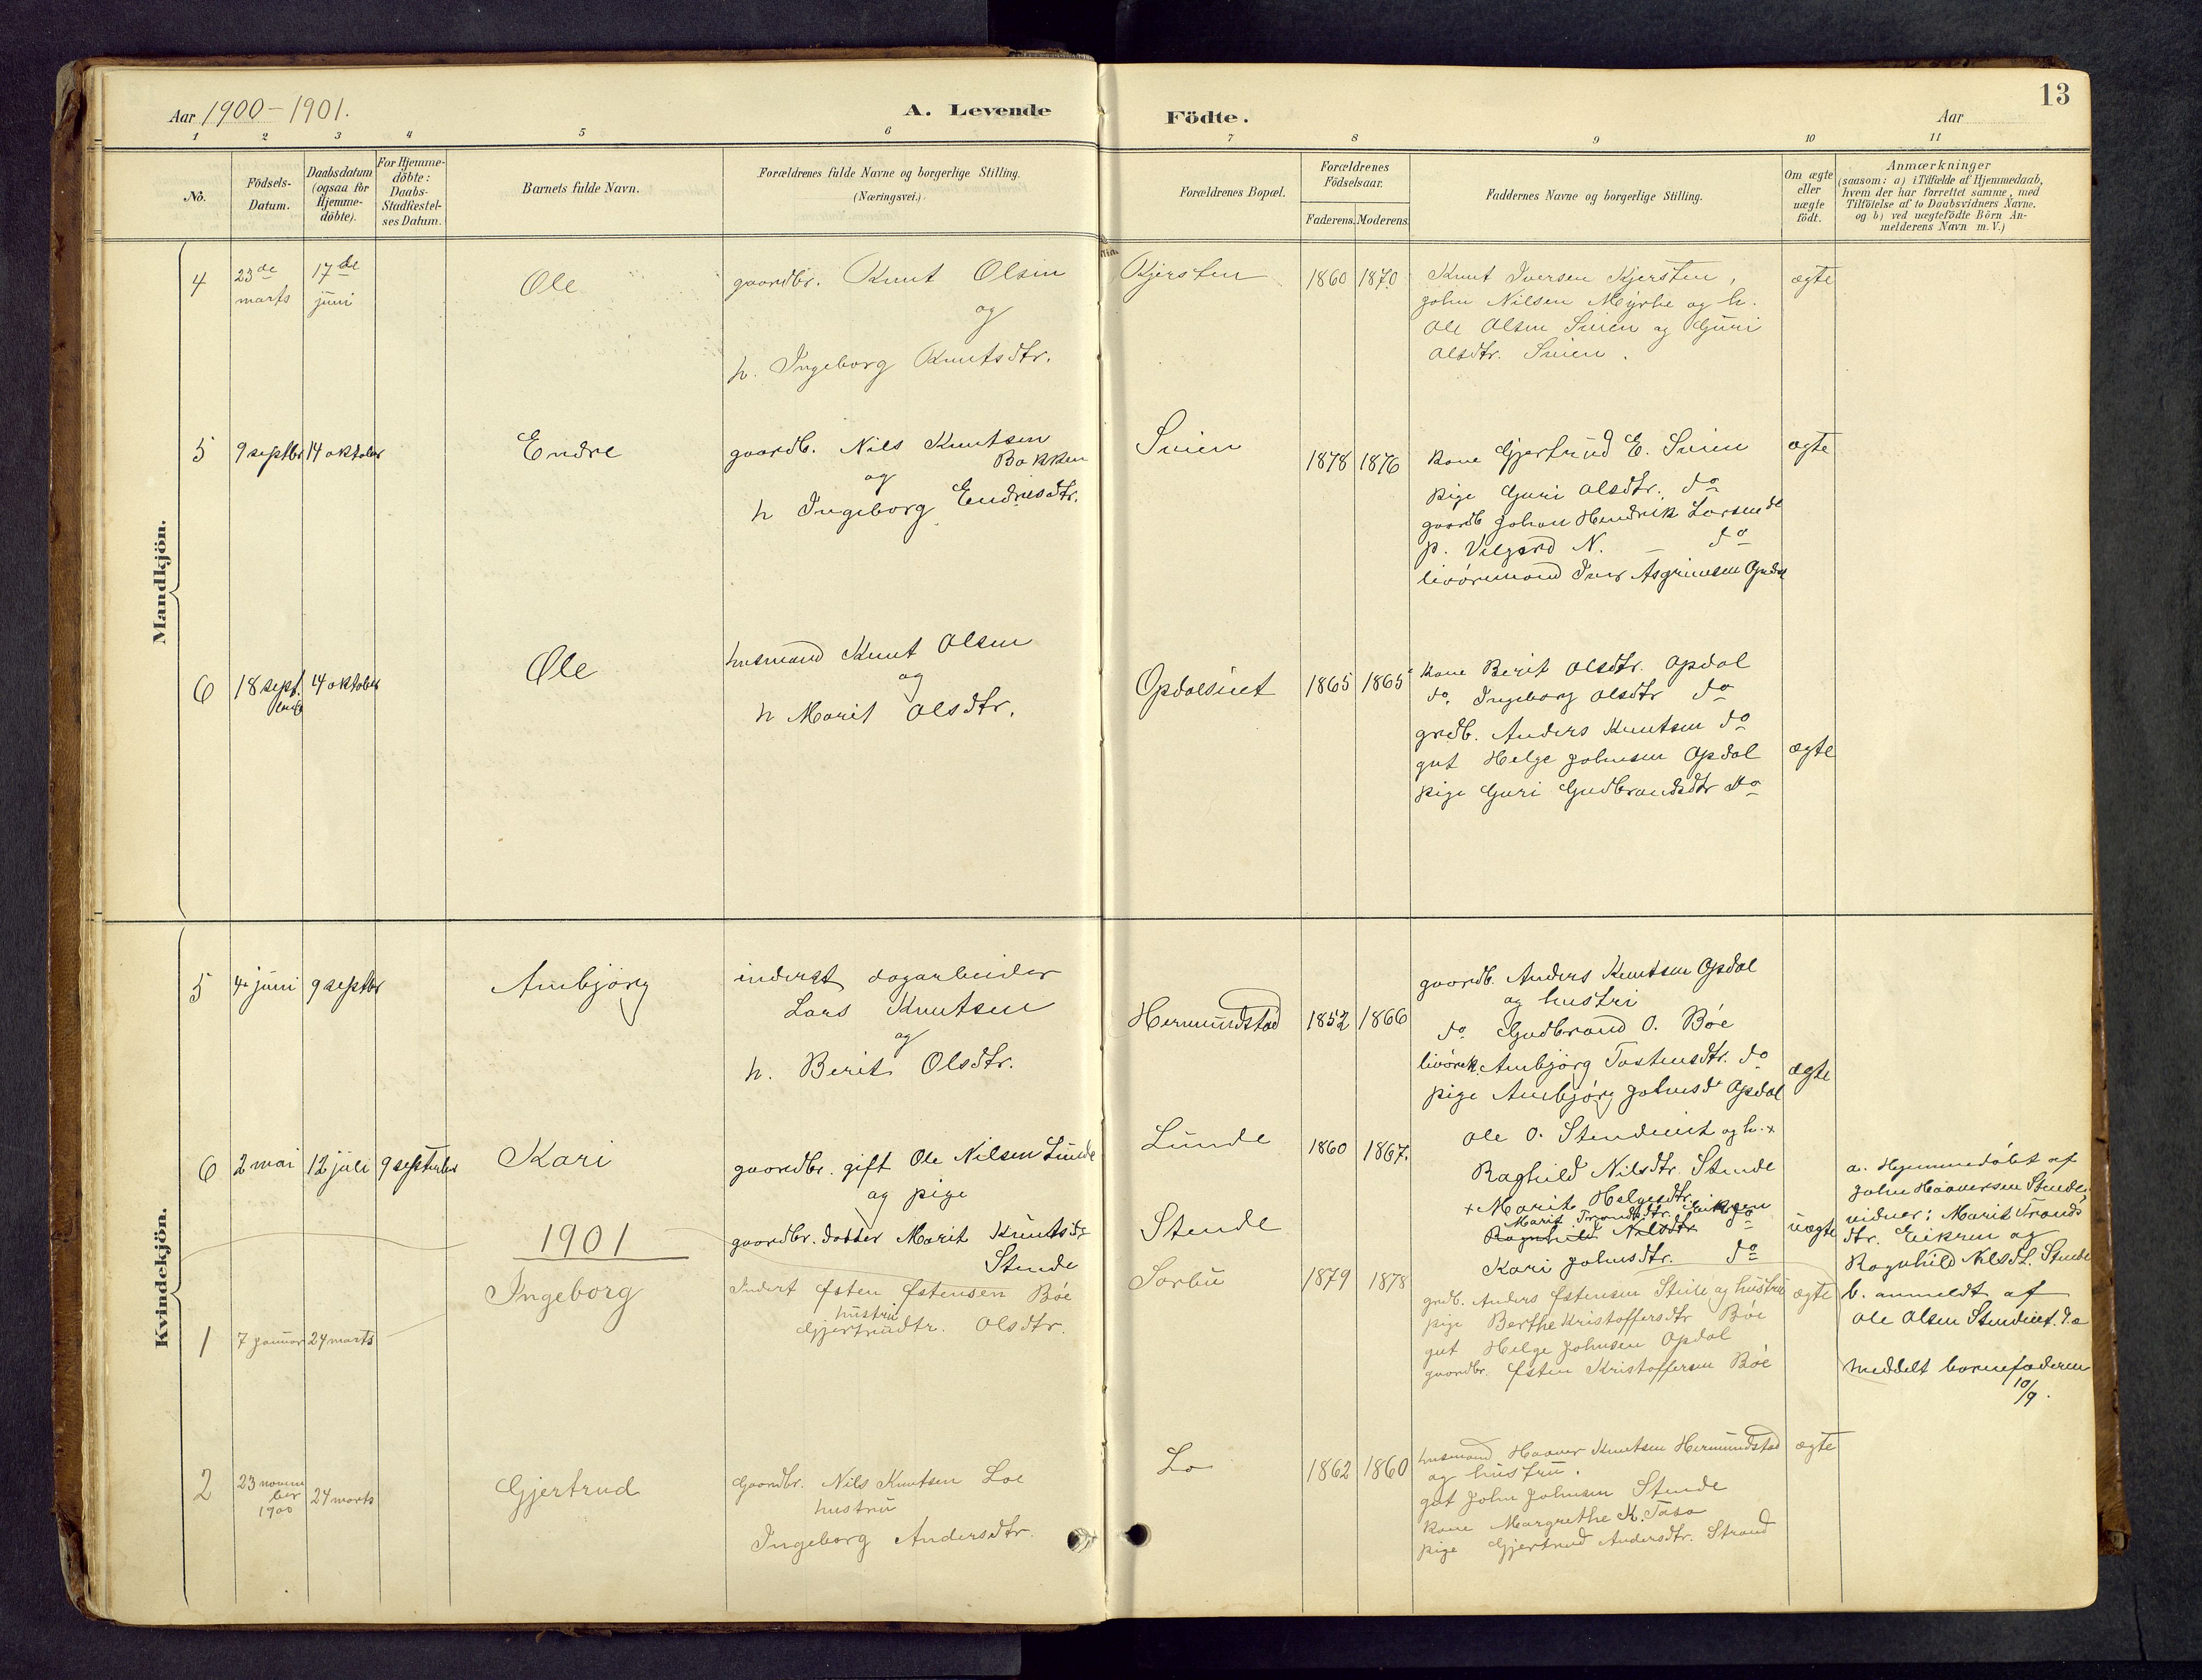 13
Aar 1900-1901.
A. Levende
Födte.
Aar
1 2 3 4 5 6 7 8 9 10 11
No.
Födsels-
Datum.
Daabsdatum
(ogsaa for
Hjemme-
döbte).
For Hjemme-
döbte:
Daabs-
Stadfæstel-
ses Datum.
Barnets fulde Navn.
Forældrenes fulde Navne og borgerlige Stilling.
(Næringsvei.)
Forældrenes Bopæl.
Forældrenes
Födselsaar.
Faderens. Moderens.
Faddernes Navne og borgerlige Stilling.
Om ægte
eller
uægte
födt.
Anmærkninger
(saasom: a) i Tilfælde af Hjemmedaab,
hvem der har forrettet samme, med
Tilföielse af to Daabsvidners Navne.
og b) ved uægtefödte Börn An-
melderens Navn m.V.)
Mandkjön.
4
23de
marts
17de
juni
Ole
gaardbr. Knut Olsen
og
h. Ingeborg Knutsdtr.
Kjersten
1860 1870
Knut Iversen Kjersten,
John Nilsen Myrhe og h.
Ole Olsen Svien og Guri
Olsdtr. Svien.
ægte
5
9 septbr
14 oktober
Endre
gaardb. Nils Knutsen
Bakken
og
h Ingeborg Endresdtr.
Svien
1878 1876
kone Gjertrud E. Svien
pige Guri Olsdtr. do
gaardb Johan Hendrik Larsen do
p. Vilgard N. do
livöremand Iver Asgrimsen Opdal
ægte
6
18 sept.
14 oktober
Ole
husmand Knut Olsen
og
h Marit Olsdtr.
Opdalseiet
1865 1865
kone Berit Olsdtr. Opdal
do. Ingeborg Olsdtr do
grdb. Anders Knutsen do
gut Helge Johnsen Opdal
pige Guri Gudbrandsdtr do
ægte
Kvindekjön.
5
4 juni
9 septbr
Ambjörg
inderst dagarbeider
Lars Knutsen
og
h. Berit Olsdtr.
Hermundstad
1852 1866
gaardb. Anders Knutsen Opdal
og hustru
do Gudbrand O. Böe
livörek. Ambjörg Tostensdtr. do
pige Ambjörg Johnsdt Opdal
ægte
6
2 mai
12 juli
9 september
Kari
gaardbr. gift Ole Nilsen Lunde
og pige
gaardbr. datter Marit Knutsdr
Stende
Lunde
Stende
1860 1867.
Ole O. Stendeiet og h. x
Raghild Nilsdtr. Stende
x Marit Helgesdtr.
Marit Trondsdtr. Eikren
Ragnhild Nilsdtr do
Kari Johnsdtr. do
uægte
a. Hjemmedöbt af
John Haaversen Stende,
vidner: Marit Tronds
dtr. Eikren og
Ragnhild Nilsdt. Stende
b. anmeldt af
Ole Olsen Stendeiet. do
meddelt barnefaderen
10/9.
1901
1
7 januar
24 marts
Ingeborg
Inderst Østen Østensen Böe
hustru
Gjertrudtr. Olsdtr.
Sorbu
1879 1878
grdb. Anders Østensen og hustru
pige Berthe Kristoffersdtr Böe
gut Helge Johnsen Opdal
gaardbr. Østen Kristoffersen Böe
ægte
2
23 novem
ber
1900
24 marts
Gjertrud
Gaardbr. Nils Knutsen Loe
hustru
Ingeborg Andersdtr.
Lo
1862 1860
husmand Haaver Knutsen Hermundstad
og hustru.
gut John Johnsen Stende
kone Margrethe K. Taso
pige Gjertrud Andersdtr. Strand
ægte